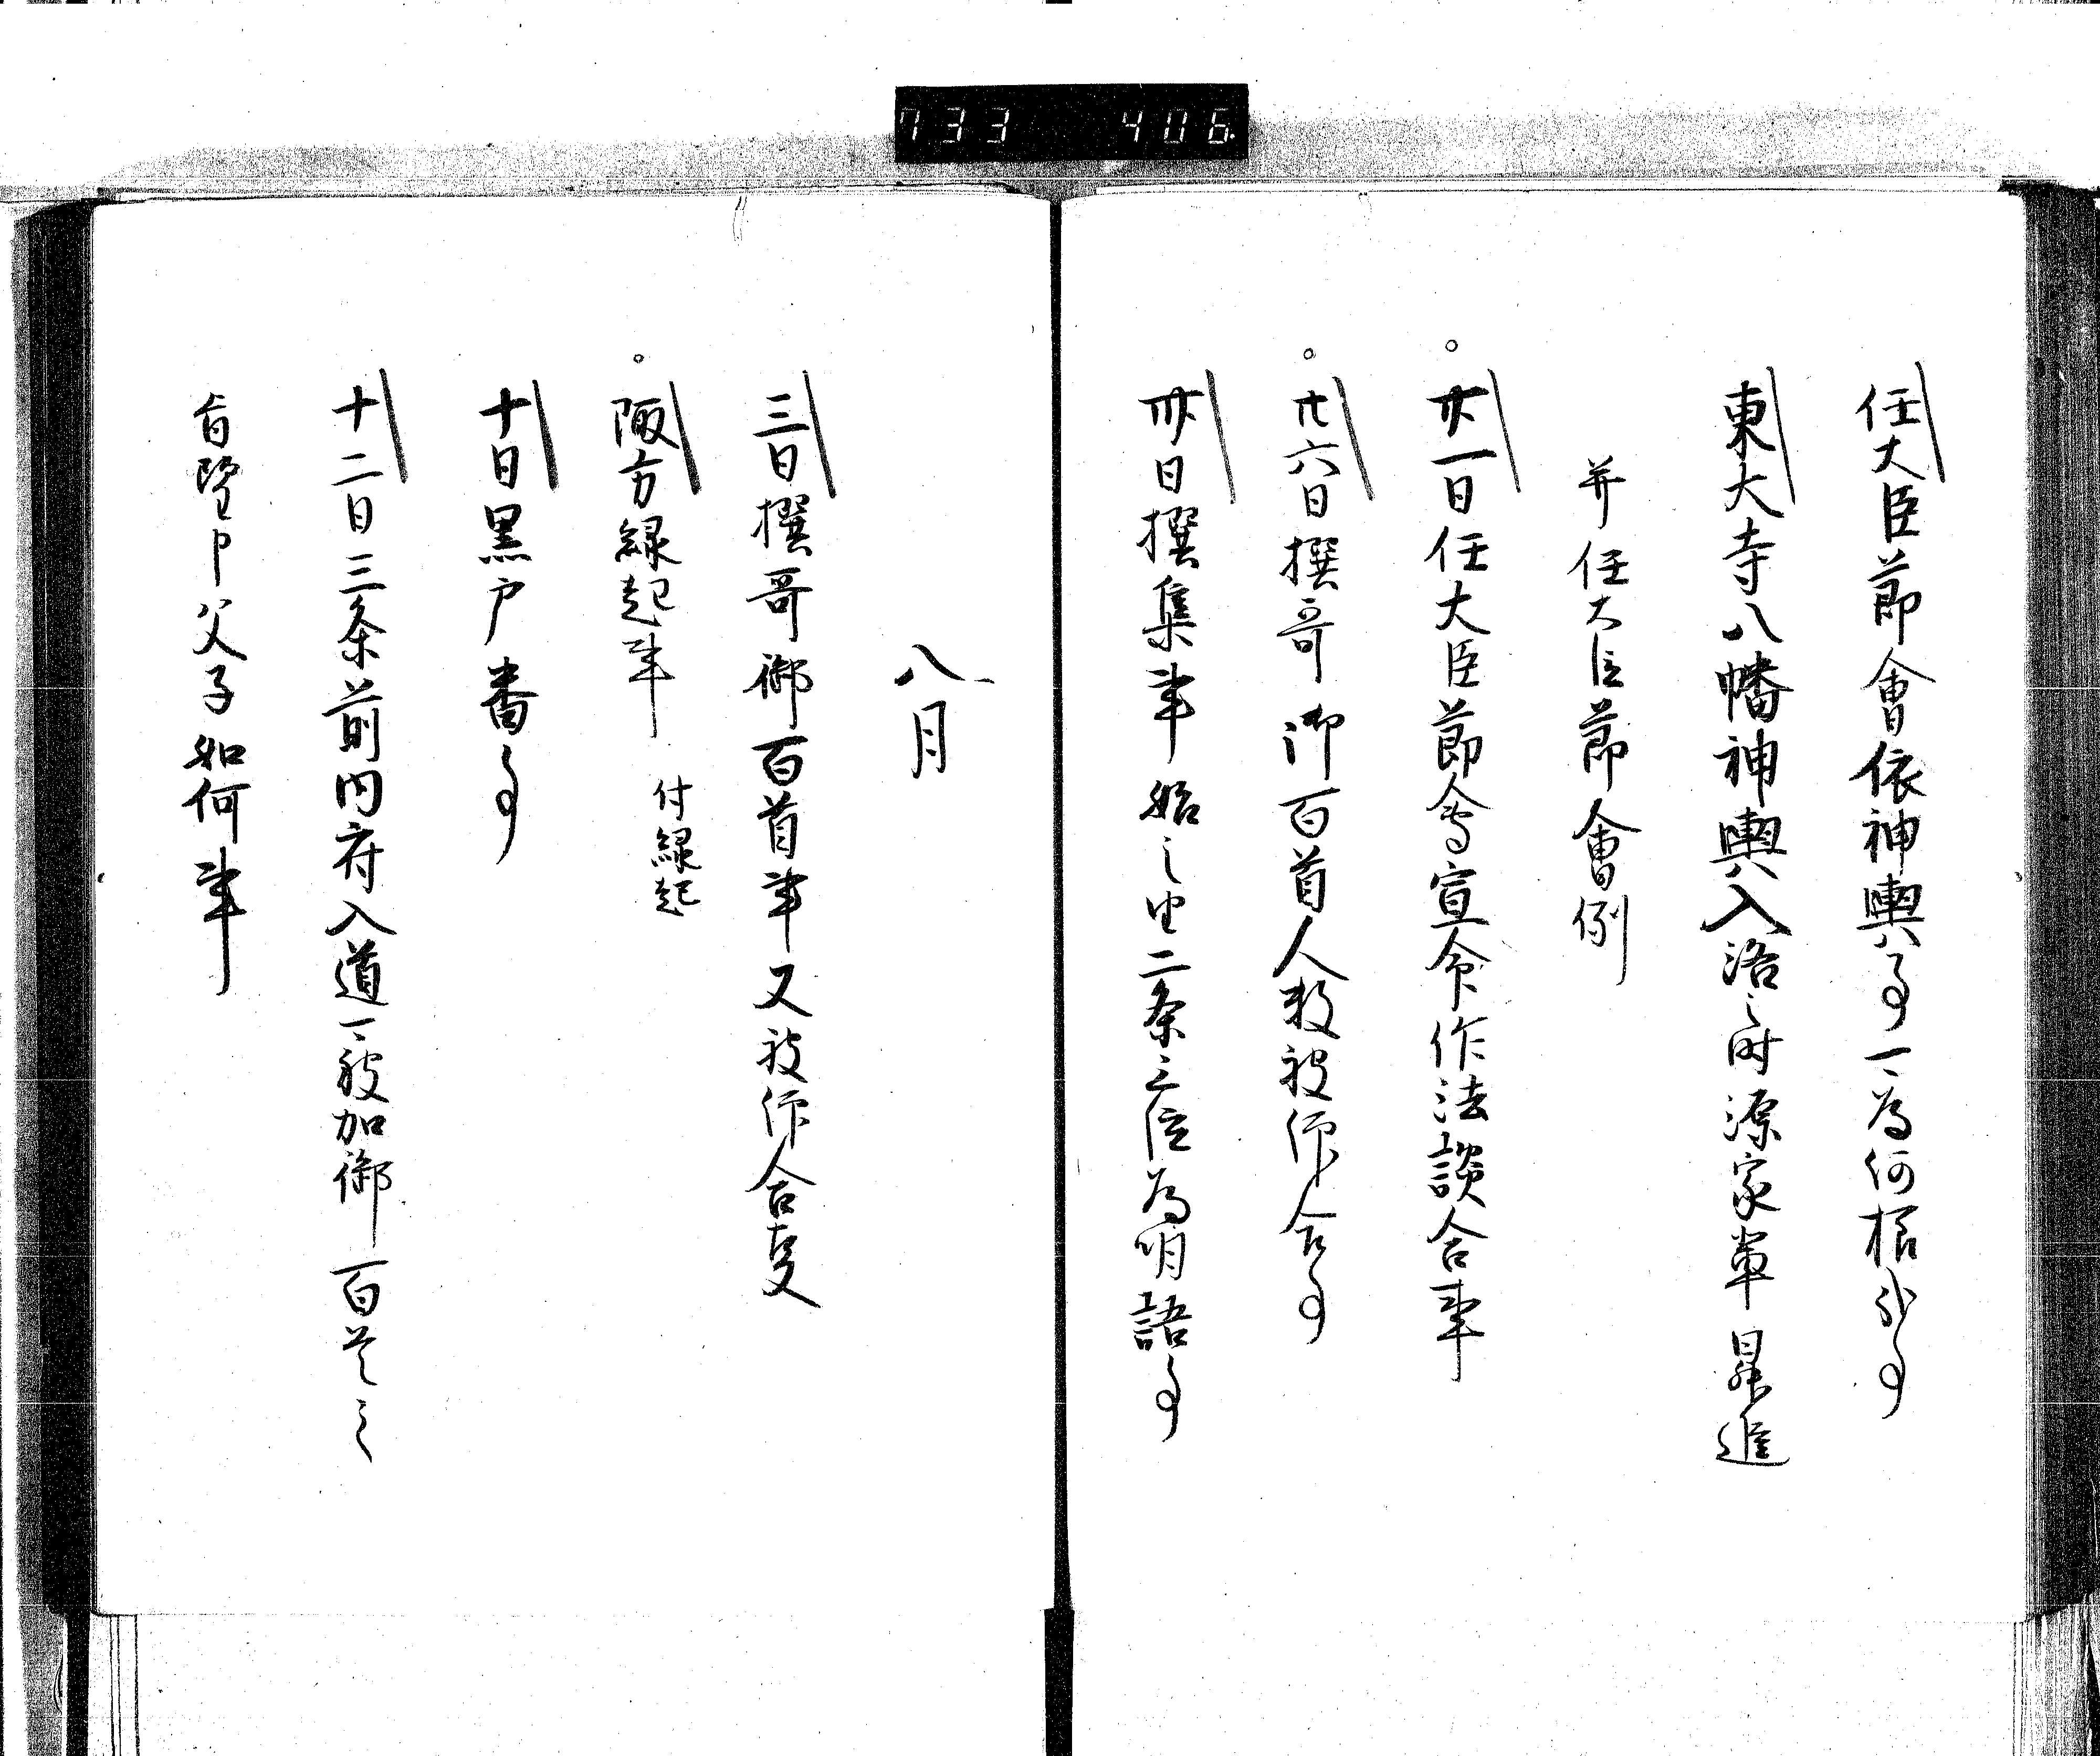 733 406
任大臣節會依神輿事可為何樣哉事
東大寺八幡神輿入洛之時源家輩昇進
并任大臣節會例
廿一日任大臣節會宣命作法談合事
廿六日撰哥御百首人数被仰合事
卅日撰集事始之由二条三位為明語事
八月
三日撰哥御百首事又被仰合叓
陬方縁起事 付縁起
十日黒戸番事
十二日三条前内府入道可被加御百首之
旨 申父子如何事